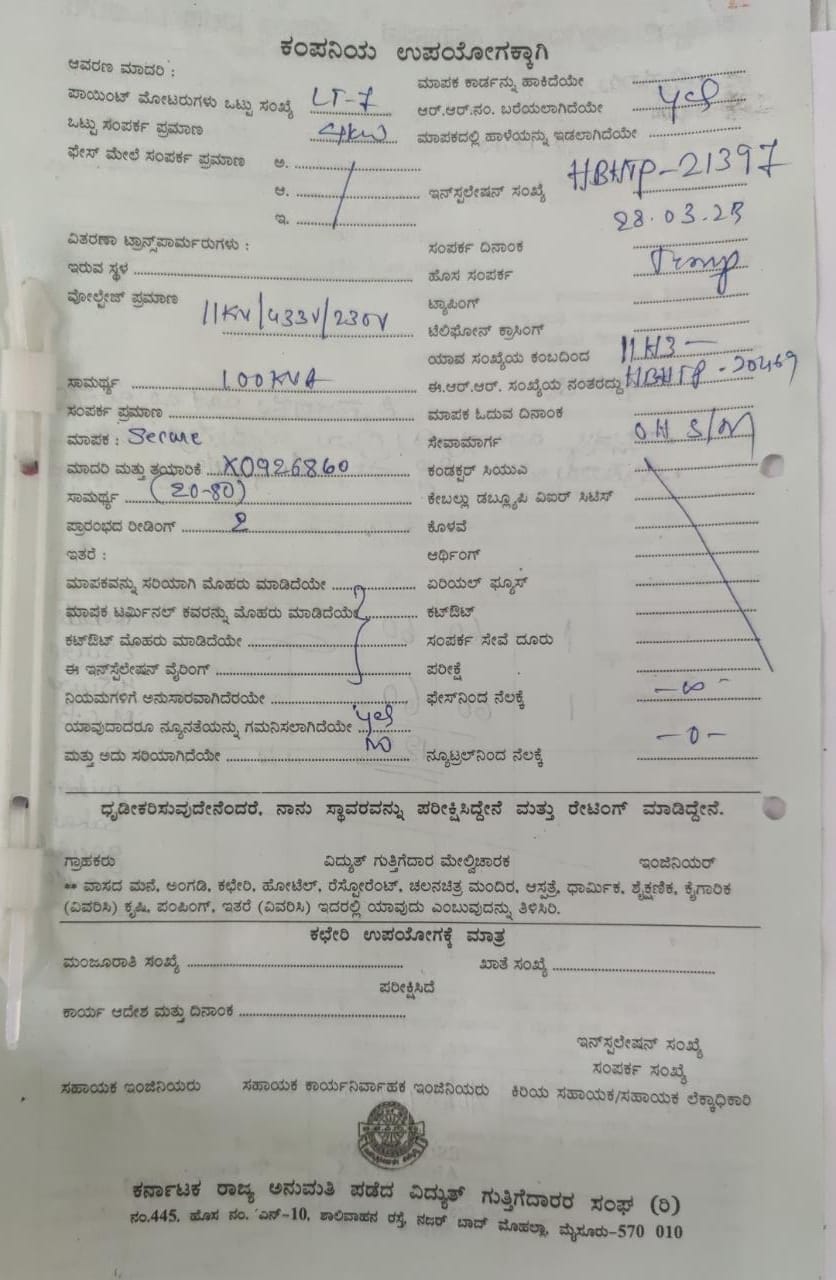 ಕಂಪನಿಯ ಉಪಯೋಗಕ್ಕಾಗಿ
ಆವರಣ ಮಾದರಿ :
ಮಾಪಕ ಕಾರ್ಡನ್ನು ಹಾಕಿದೆಯೇ
ಪಾಯಿಂಟ್ ಮೋಟರುಗಳು ಒಟ್ಟು ಸಂಖ್ಯೆ LT-7
ಆರ್.ಆರ್.ನಂ. ಬರೆಯಲಾಗಿದೆಯೇ yes
ಒಟ್ಟು ಸಂಪರ್ಕ ಪ್ರಮಾಣ 4kw
ಮಾಪಕದಲ್ಲಿ ಹಾಳೆಯನ್ನು ಇಡಲಾಗಿದೆಯೇ
ಫೇಸ್ ಮೇಲೆ ಸಂಪರ್ಕ ಪ್ರಮಾಣ ಅ.
ಆ.
ಇನ್ಸ್ಟಲೇಷನ್ ಸಂಖ್ಯೆ HBHTP-21397
ಇ.
28.03.23
ವಿತರಣಾ ಟ್ರಾನ್ಸ್‌ಪಾರ್ಮರುಗಳು :
ಸಂಪರ್ಕ ದಿನಾಂಕ
ಇರುವ ಸ್ಥಳ
ಹೊಸ ಸಂಪರ್ಕ Temp
ವೋಲ್ಟೇಜ್ ಪ್ರಮಾಣ 11KV/433V/230V
ಟ್ಯಾಪಿಂಗ್
ಟೆಲಿಫೋನ್ ಕ್ರಾಸಿಂಗ್
ಯಾವ ಸಂಖ್ಯೆಯ ಕಂಬದಿಂದ
ಸಾಮರ್ಥ್ಯ 100KVA
ಈ.ಆರ್.ಆರ್. ಸಂಖ್ಯೆಯ ನಂತರದ್ದು HBHTP-20469
ಸಂಪರ್ಕ ಪ್ರಮಾಣ
ಮಾಪಕ ಓದುವ ದಿನಾಂಕ
ಮಾಪಕ : Secure
ಸೇವಾಮಾರ್ಗ OH S/M
ಮಾದರಿ ಮತ್ತು ತಯಾರಿಕೆ X0926860
ಕಂಡಕ್ಟರ್ ಸಿಯುಎ
ಸಾಮರ್ಥ್ಯ (20-80)
ಕೇಬಲ್ಲು ಡಬ್ಲ್ಯೂಪಿ ವಿಐರ್ ಸಿಟಿಸ್
ಪ್ರಾರಂಭದ ರೀಡಿಂಗ್ 2
ಕೊಳವೆ
ಇತರೆ :
ಆರ್ಥಿಂಗ್
ಮಾಪಕವನ್ನು ಸರಿಯಾಗಿ ಮೊಹರು ಮಾಡಿದೆಯೇ
ಏರಿಯಲ್ ಫ್ಯೂಸ್
ಮಾಪಕ ಟರ್ಮಿನಲ್ ಕವರನ್ನು ಮೊಹರು ಮಾಡಿದೆಯೇ
ಕಟ್‌ಔಟ್
ಕಟ್‌ಔಟ್ ಮೊಹರು ಮಾಡಿದೆಯೇ
ಸಂಪರ್ಕ ಸೇವೆ ದೂರು
ಈ ಇನ್‌ಸ್ಟೆಲೇಷನ್ ವೈರಿಂಗ್
ಪರೀಕ್ಷೆ
ನಿಯಮಗಳಿಗೆ ಅನುಸಾರವಾಗಿದೆರೆಯೇ
ಫೇಸ್‌ನಿಂದ ನೆಲಕ್ಕೆ -∞-
ಯಾವುದಾದರೂ ನ್ಯೂನತೆಯನ್ನು ಗಮನಿಸಲಾಗಿದೆಯೇ yes
ಮತ್ತು ಅದು ಸರಿಯಾಗಿದೆಯೇ NO
ನ್ಯೂಟ್ರಲ್‌ನಿಂದ ನೆಲಕ್ಕೆ -0-
ಧೃಡೀಕರಿಸುವುದೇನೆಂದರೆ, ನಾನು ಸ್ಥಾವರವನ್ನು ಪರೀಕ್ಷಿಸಿದ್ದೇನೆ ಮತ್ತು ರೇಟಿಂಗ್ ಮಾಡಿದ್ದೇನೆ.
ಗ್ರಾಹಕರು ವಿದ್ಯುತ್ ಗುತ್ತಿಗೆದಾರ ಮೇಲ್ವಿಚಾರಕ ಇಂಜಿನಿಯರ್
** ವಾಸದ ಮನೆ, ಅಂಗಡಿ, ಕಛೇರಿ, ಹೋಟೆಲ್, ರೆಸ್ಟೋರೆಂಟ್, ಚಲನಚಿತ್ರ ಮಂದಿರ, ಆಸ್ಪತ್ರೆ, ಧಾರ್ಮಿಕ, ಶೈಕ್ಷಣಿಕ, ಕೈಗಾರಿಕ
(ವಿವರಿಸಿ) ಕೃಷಿ, ಪಂಪಿಂಗ್, ಇತರೆ (ವಿವರಿಸಿ) ಇದರಲ್ಲಿ ಯಾವುದು ಎಂಬುವುದನ್ನು ತಿಳಿಸಿರಿ.
ಕಛೇರಿ ಉಪಯೋಗಕ್ಕೆ ಮಾತ್ರ
ಮಂಜೂರಾತಿ ಸಂಖ್ಯೆ ಖಾತೆ ಸಂಖ್ಯೆ
ಪರೀಕ್ಷಿಸಿದೆ
ಕಾರ್ಯ ಆದೇಶ ಮತ್ತು ದಿನಾಂಕ
ಇನ್‌ಸ್ಪಲೇಷನ್ ಸಂಖ್ಯೆ
ಸಂಪರ್ಕ ಸಂಖ್ಯೆ
ಸಹಾಯಕ ಇಂಜಿನಿಯರು ಸಹಾಯಕ ಕಾರ್ಯನಿರ್ವಾಹಕ ಇಂಜಿನಿಯರು ಕಿರಿಯ ಸಹಾಯಕ/ಸಹಾಯಕ ಲೆಕ್ಕಾಧಿಕಾರಿ
ಕರ್ನಾಟಕ ರಾಜ್ಯ ಅನುಮತಿ ಪಡೆದ ವಿದ್ಯುತ್ ಗುತ್ತಿಗೆದಾರರ ಸಂಘ (ರಿ)
ನಂ.445, ಹೊಸ ನಂ. ಎನ್-10, ಶಾಲಿವಾಹನ ರಸ್ತೆ, ನಜರ್ ಬಾದ್ ಮೊಹಲ್ಲಾ, ಮೈಸೂರು-570 010